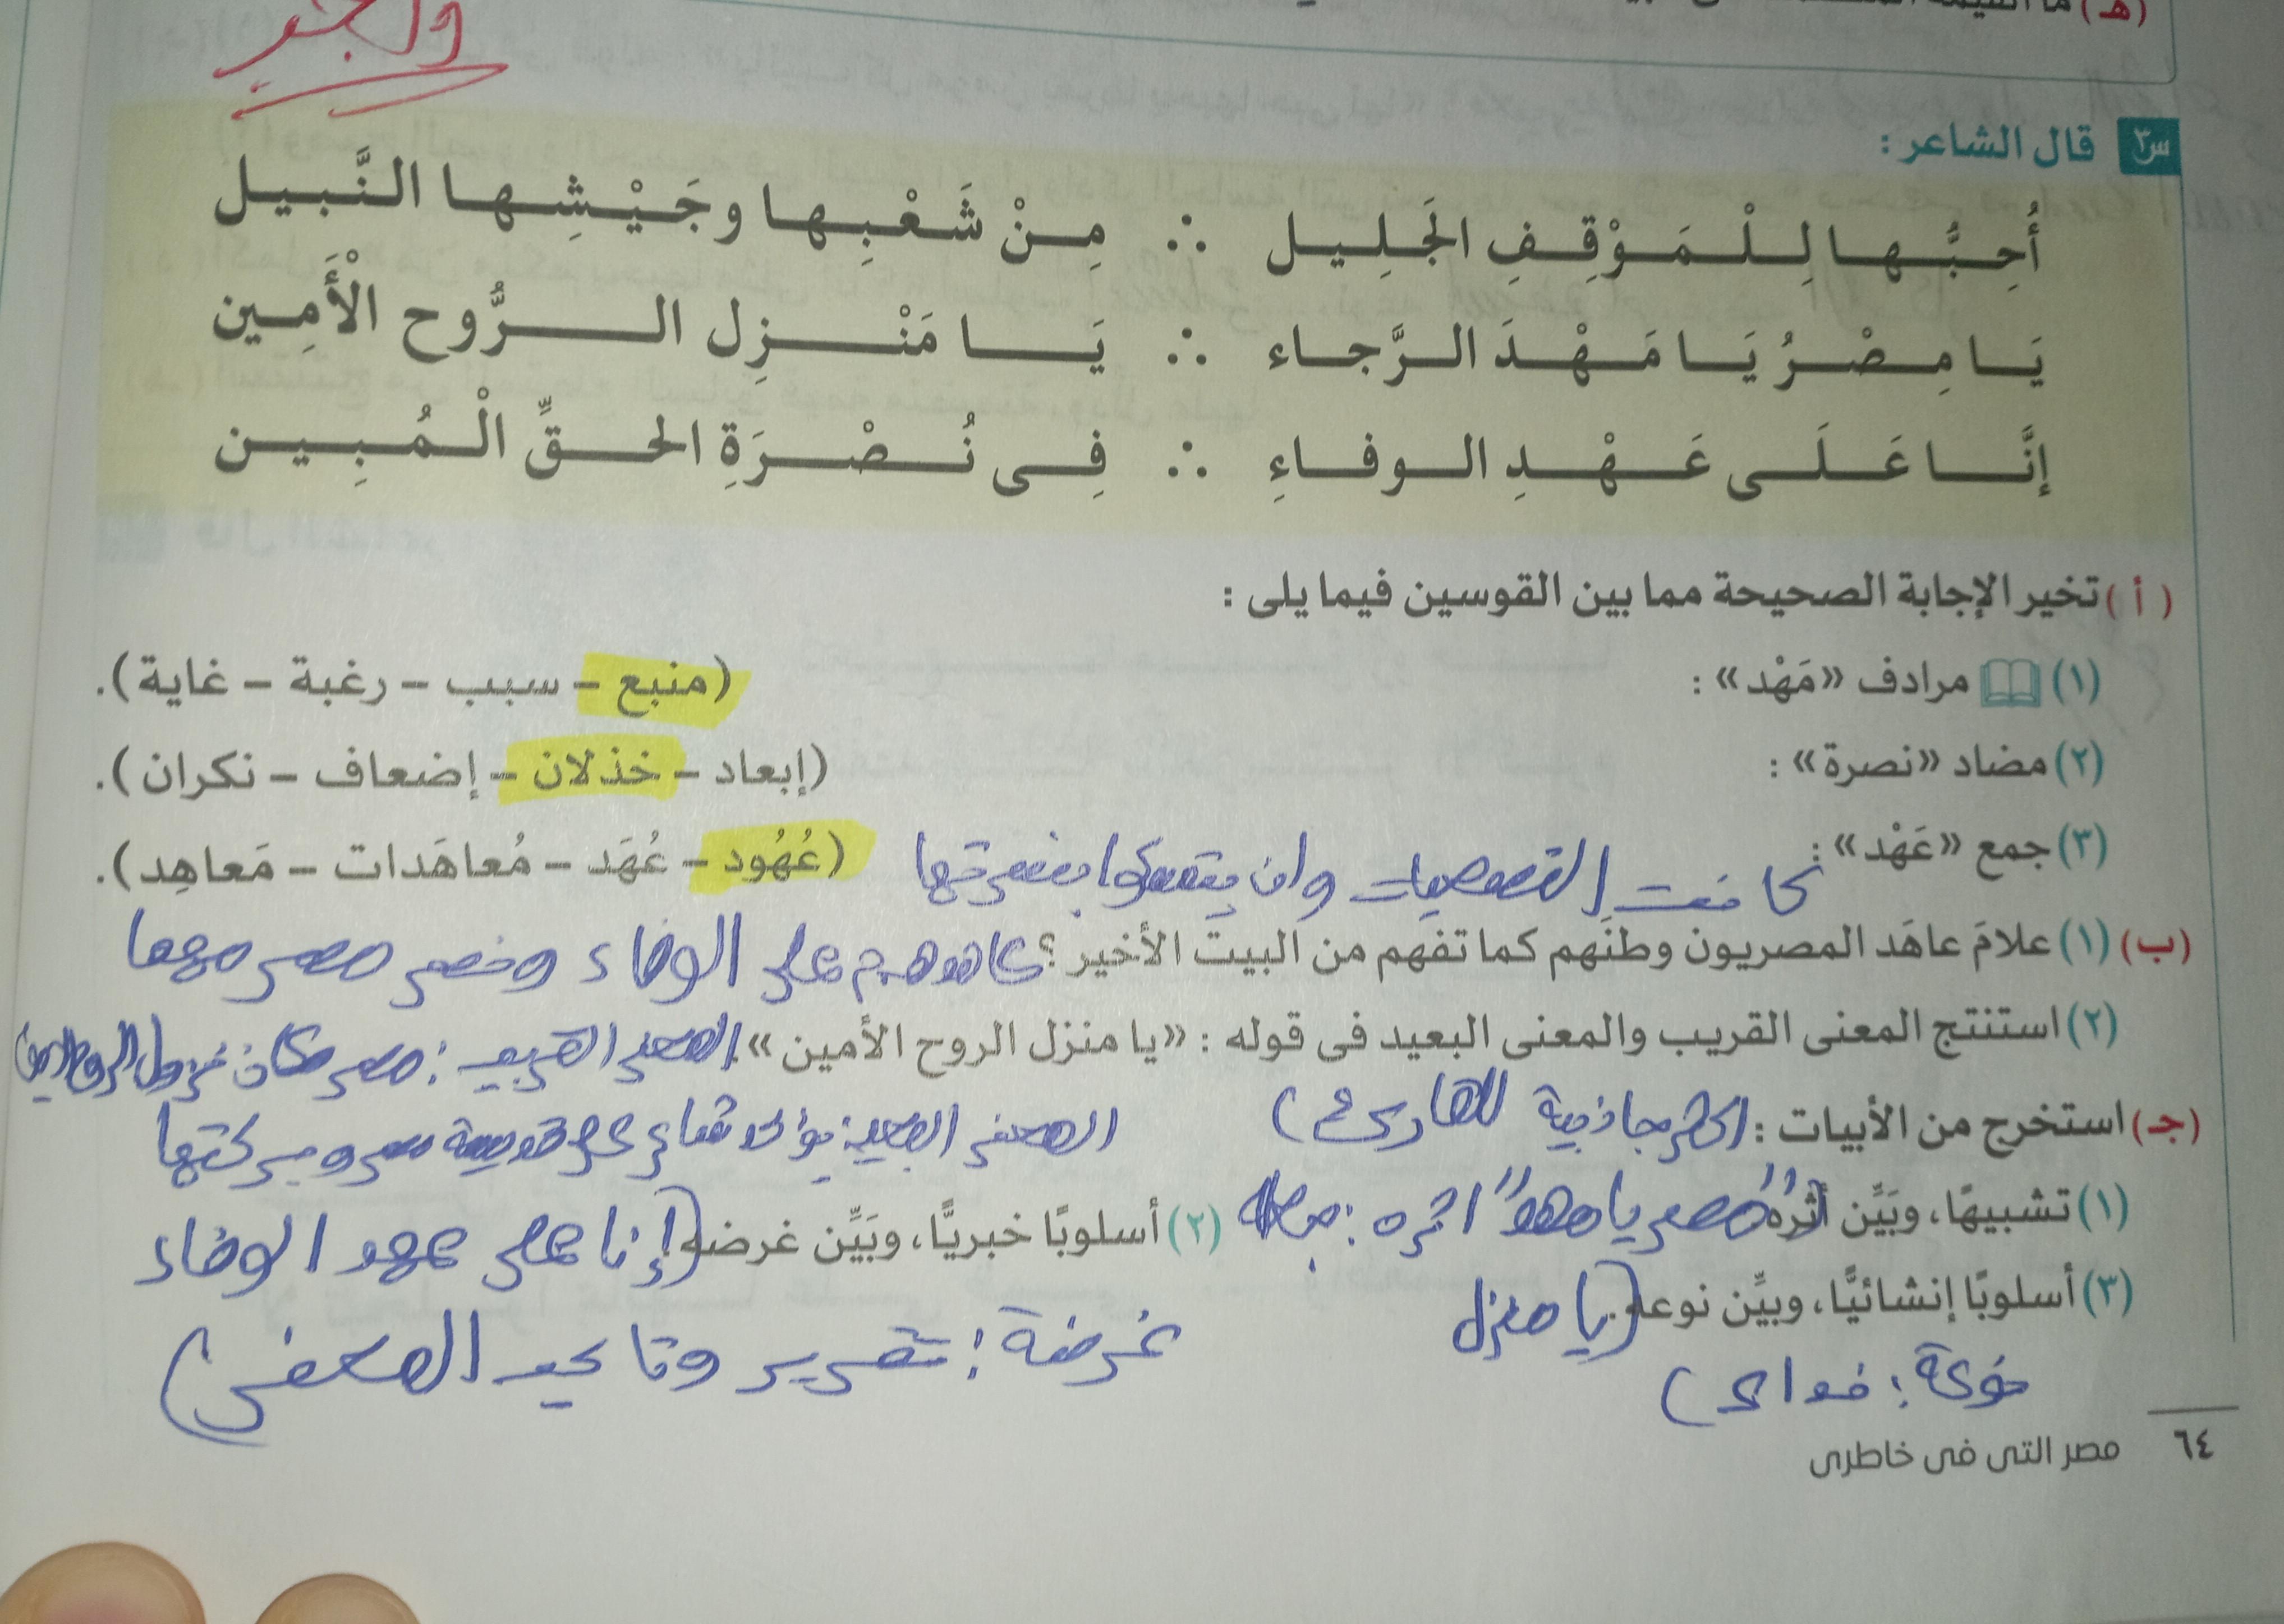 والجذر
س٣ قال الشاعر :
أُحِبُّها لِلْمَوْقِفِ الجَلِيل ∴ مِنْ شَعْبِها وجَيْشِها النَّبيل
يَا مِصْرُ يَا مَهْدَ الرَّجاء ∴ يَا مَنْزِل الرُّوح الْأَمِين
إنَّا عَلَى عَهْدِ الوفاءِ ∴ فِى نُصْرَةِ الحقِّ الْمُبِين
(أ) تخير الإجابة الصحيحة مما بين القوسين فيما يلى :
(١) مرادف «مَهْد» : (منبع – سبب – رغبة – غاية).
(٢) مضاد «نصرة» : (إبعاد – خذلان – إضعاف – نكران).
(٣) جمع «عَهْد» : (عُهُود – عُهَد – مُعاهَدات – مَعاهِد).
كانت التضحيات وان يتمسكوا بنصرتها
(ب) (١) علامَ عاهَد المصريون وطنَهم كما تفهم من البيت الأخير ؟ عاهدهم على الوفاء ونصر مصر مهما
(٢) استنتج المعنى القريب والمعنى البعيد فى قوله : «يا منزل الروح الأمين». المعنى القريب : مصر مكان نزول الروح الامين
المعنى البعيد : يؤكد على قدسية مصر وبركتها
(جـ) استخرج من الأبيات : اكثر جاذبية للقارئ)
(١) تشبيهًا، وبَيِّن أثره. (مصر يا مهد" اثره : جعله
(٢) أسلوبًا خبريًّا، وبَيِّن غرضه. (إنا على عهد الوفاء
غرضة : تقرير وتاكيد المعنى)
(٣) أسلوبًا إنشائيًّا، وبيِّن نوعه. (يا منزل
نوعة : نداء)
٦٤ مصر التى فى خاطرى